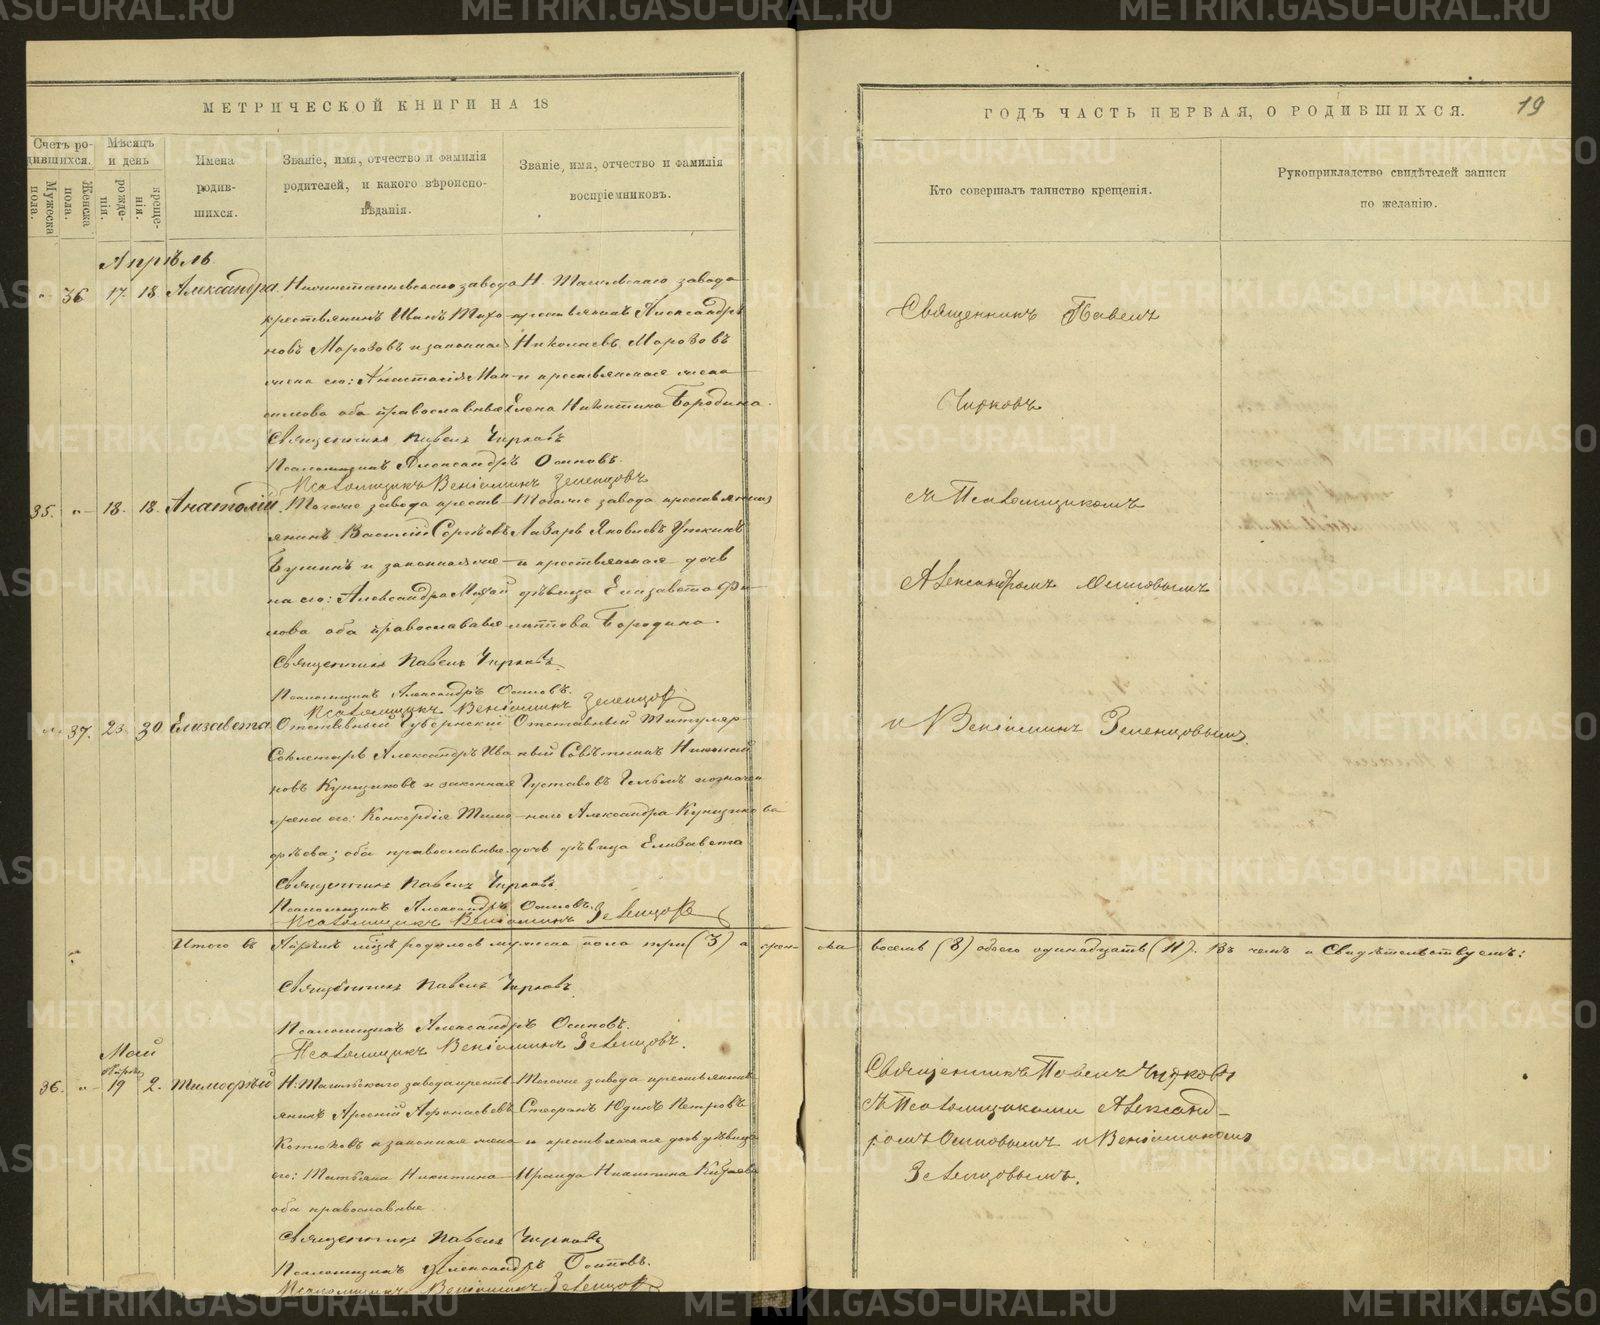 МЕТРИЧЕСКОЙ КНИГИ НА 18
ГОДЪ ЧАСТЬ ПЕРВАЯ, О РОДИВШИХСЯ.
19
Счетъ родившихся.
Мужеска пола.
Женска пола.
Мѣсяцъ и день
рожденія.
крещенія.
Имена родившихся.
Званіе, имя, отчество и фамилія родителей, и какого вѣроисповѣданія.
Званіе, имя, отчество и фамилія воспріемниковъ.
Кто совершалъ таинство крещенія.
Рукоприкладство свидѣтелей записи по желанію.
Апрѣль
36 17. 18 Александра
завода
крестьянинъ Иванъ Тихоновъ Морозовъ и законная
жена его: Анастасія
оба православные
Н. Тагильскаго завода
крестьянинъ Александръ
Николаевъ Морозовъ
и крестьянская жена
Елена Никитина Бородина.
Священникъ Павелъ Чирковъ
Псаломщикъ Александръ Осиповъ.
Псаломщикъ Веніаминъ Зеленцовъ
Священникъ Павелъ
Чирковъ
съ Псаломщикомъ
Александромъ Осиповымъ
и Веніаминъ Зеленцовымъ.
35. " 18. 18. Анатолій
Тогоже завода крестьянинъ Василій Сергѣевъ
и законная жена его: Александра
оба православные
Тогоже завода крестьянинъ
Лазарь Яковлевъ Уткинъ
и крестьянская дочь
дѣвица Елизавета Филиппова Бородина.
Священникъ Павелъ Чирковъ
Псаломщикъ Александръ Осиповъ.
Псаломщикъ Веніаминъ Зеленцовъ
" 37. 23. 30 Елизавета
Отставный Губернскій
Секретарь Александръ Ивановъ Купщиковъ и законная
жена его: Конкордія Тимофѣева; оба православные.
Отставный Титулярный Совѣтникъ Николай
Густавовъ
Александра Купщикова
дочь дѣвица Елизавета
Священникъ Павелъ Чирковъ
Псаломщикъ Александръ Осиповъ.
Псаломщикъ Веніаминъ Зеленцовъ
Итого въ Апрѣлѣ м-цѣ родилось мужеска пола три (3) а женска восемь (8) обоего одинадцать (11). Въ чемъ и Свидѣтельствуемъ:
Священникъ Павелъ Чирковъ
Псаломщикъ Александръ Осиповъ.
Псаломщикъ Веніаминъ Зеленцовъ.
Май
Апрѣль
36. " 19 2. Тимофѣй
Н. Тагильского завода крестьянинъ Арсеній Афонасьевъ
Котюковъ и законная жена
его: Татьяна Никитина
оба православные
Тогоже завода крестьянинъ
Стефанъ Юдинъ Петровъ
и крестьянская дочь дѣвица
Ираида Никитина
Священникъ Павелъ Чирковъ
Псаломщикъ Александръ Осиповъ.
Псаломщикъ Веніаминъ Зеленцовъ
Священникъ Павелъ Чирковъ
съ Псаломщиками Александромъ Осиповымъ и Веніаминомъ
Зеленцовымъ.
METRIKI.GASO-URAL.RU